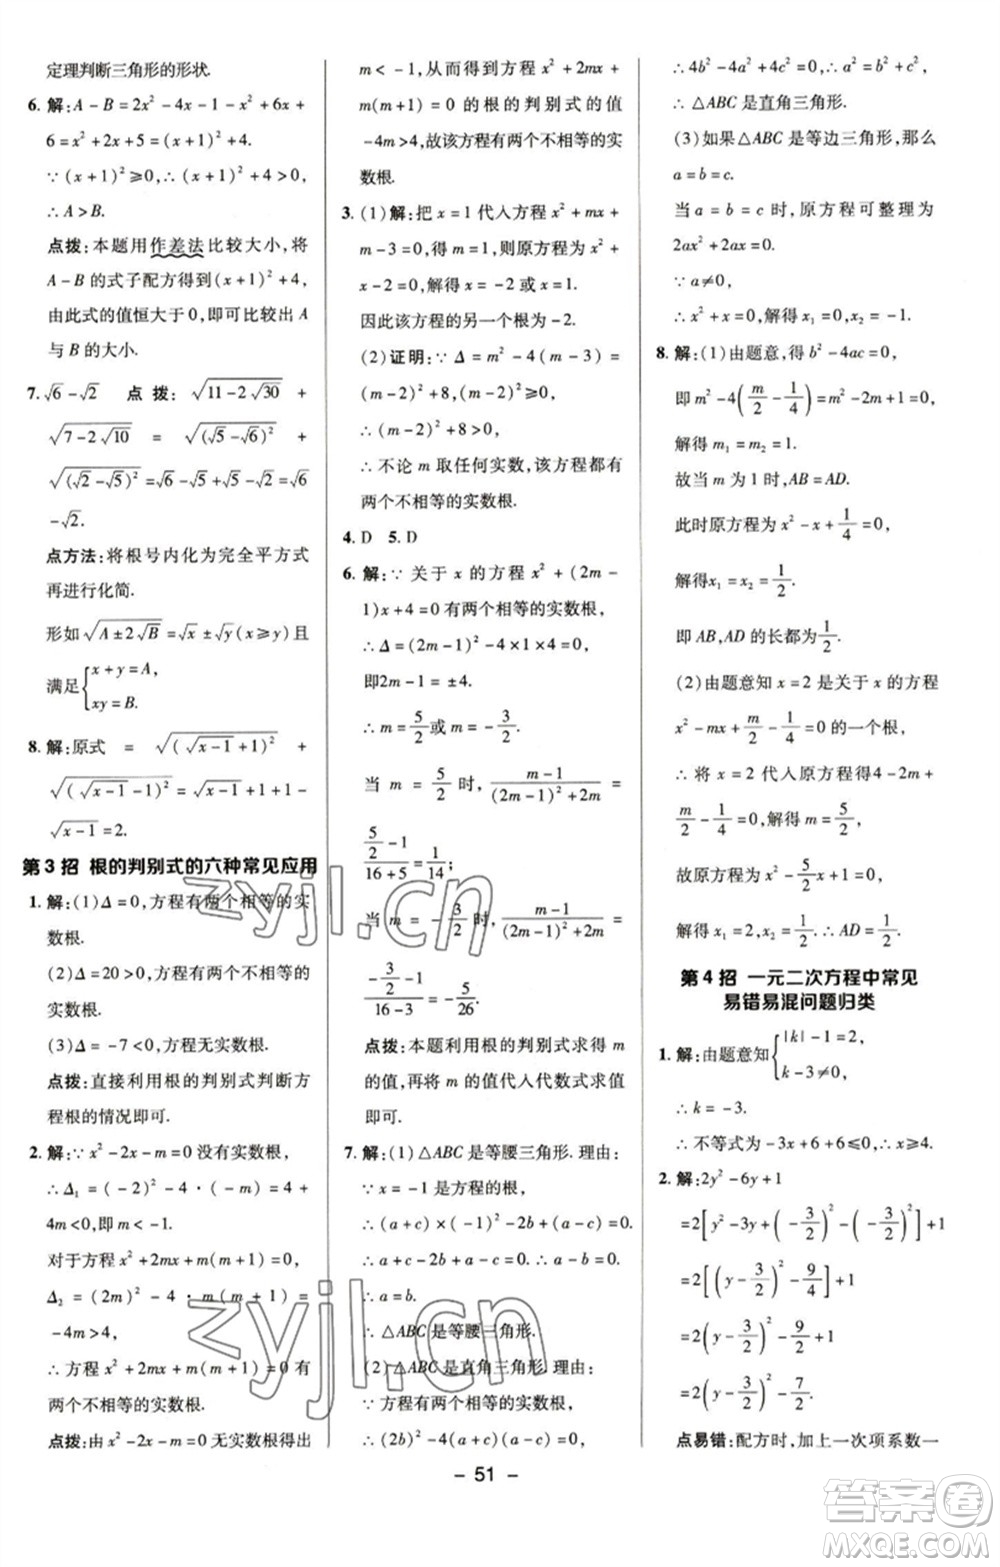 定理判断三角形的形状.
6. 解:A-B=2x²-4x-1-x²+6x+
6=x²+2x+5=(x+1)²+4.
∵(x+1)²≥0,∴(x+1)²+4>0,
∴A>B.
点拨:本题用作差法比较大小,将
A-B的式子配方得到(x+1)²+4,
由此式的值恒大于0,即可比较出A
与B的大小.
7. √6-√2 点拨:√(11-2√30) +
√(7-2√10) = √((√5-√6)²) +
√((√2-√5)²)=√6-√5+√5-√2=√6
-√2.
点方法:将根号内化为完全平方式
再进行化简.
形如√(A±2√B)=√x±√y(x≥y)且
满足{x+y=A,
xy=B.
8. 解:原式 = √((√(x-1)+1)²) +
√((√(x-1)-1)²)=√(x-1)+1+1-
√(x-1)=2.
第3招 根的判别式的六种常见应用
1. 解:(1)Δ=0,方程有两个相等的实
数根.
(2)Δ=20>0,方程有两个不相等的
实数根.
(3)Δ=-7<0,方程无实数根.
点拨:直接利用根的判别式判断方
程根的情况即可.
2. 解:∵x²-2x-m=0没有实数根,
∴Δ₁=(-2)²-4·(-m)=4+
4m<0,即m<-1.
对于方程x²+2mx+m(m+1)=0,
Δ₂=(2m)²-4·m(m+1)=
-4m>4,
∴方程x²+2mx+m(m+1)=0有
两个不相等的实数根.
点拨:由x²-2x-m=0无实数根得出
m<-1,从而得到方程x²+2mx+
m(m+1)=0的根的判别式的值
-4m>4,故该方程有两个不相等的实
数根.
3. (1)解:把x=1代入方程x²+mx+
m-3=0得m=1,则原方程为x²+
x-2=0,解得x=-2或x=1.
因此该方程的另一个根为-2.
(2)证明:∵Δ=m²-4(m-3)=
(m-2)²+8,(m-2)²≥0,
∴(m-2)²+8>0,
∴不论m取任何实数,该方程都有
两个不相等的实数根.
4. D 5. D
6. 解:∵关于x的方程x²+(2m-
1)x+4=0有两个相等的实数根,
∴Δ=(2m-1)²-4×1×4=0,
即2m-1=±4.
∴m=5/2或m=-3/2.
当m=5/2时,(m-1)/((2m-1)²+2m)=
(5/2-1)/(16+5)=1/14;
当m=-3/2时,(m-1)/((2m-1)²+2m)=
(-3/2-1)/(16-3)=-5/26.
点拨:本题利用根的判别式求得m
的值,再将m的值代入代数式求值
即可.
7. 解:(1)△ABC是等腰三角形.理由:
∵x=-1是方程的根,
∴(a+c)×(-1)²-2b+(a-c)=0.
∴a+c-2b+a-c=0.∴a-b=0.
∴a=b.
∴△ABC是等腰三角形.
(2)△ABC是直角三角形.理由:
∵方程有两个相等的实数根,
∴(2b)²-4(a+c)(a-c)=0.
∴4b²-4a²+4c²=0.∴a²=b²+c².
∴△ABC是直角三角形.
(3)如果△ABC是等边三角形,那么
a=b=c.
当a=b=c时,原方程可整理为
2ax²+2ax=0.
∵a≠0,
∴x²+x=0.解得x₁=0,x₂=-1.
8. 解:(1)由题意,得b²-4ac=0,
即m²-4(m/2-1/4)=0,
解得m₁=m₂=1.
故当m=1时,AB=AD.
此时原方程为x²-x+1/4=0,
解得x₁=x₂=1/2.
即AB,AD的长都为1/2.
(2)由题意知x=2是关于x的方程
x²-mx+m/2-1/4=0的一个根.
∴将x=2代入原方程得4-2m+
m/2-1/4=0,解得m=5/2.
故原方程为x²-5/2x+1=0.
解得x₁=2,x₂=1/2.∴AD=1/2.
第4招 一元二次方程中常见
易错易混问题归类
1. 解:由题意知{|k|-1=2,
k-3≠0,
∴k=-3.
∴不等式为-3x+6+6≤0,∴x≥4.
2. 解:2y²-6y+1
=2[y²-3y+(-3/2)²-(-3/2)²]+1
=2[(y-3/2)²-9/4]+1
=2(y-3/2)²-9/2+1
=2(y-3/2)²-7/2.
点易错:配方时,加上一次项系数一
- 51 -
zyjl.cn
zyjl.cn
答案圈
MXQE.COM